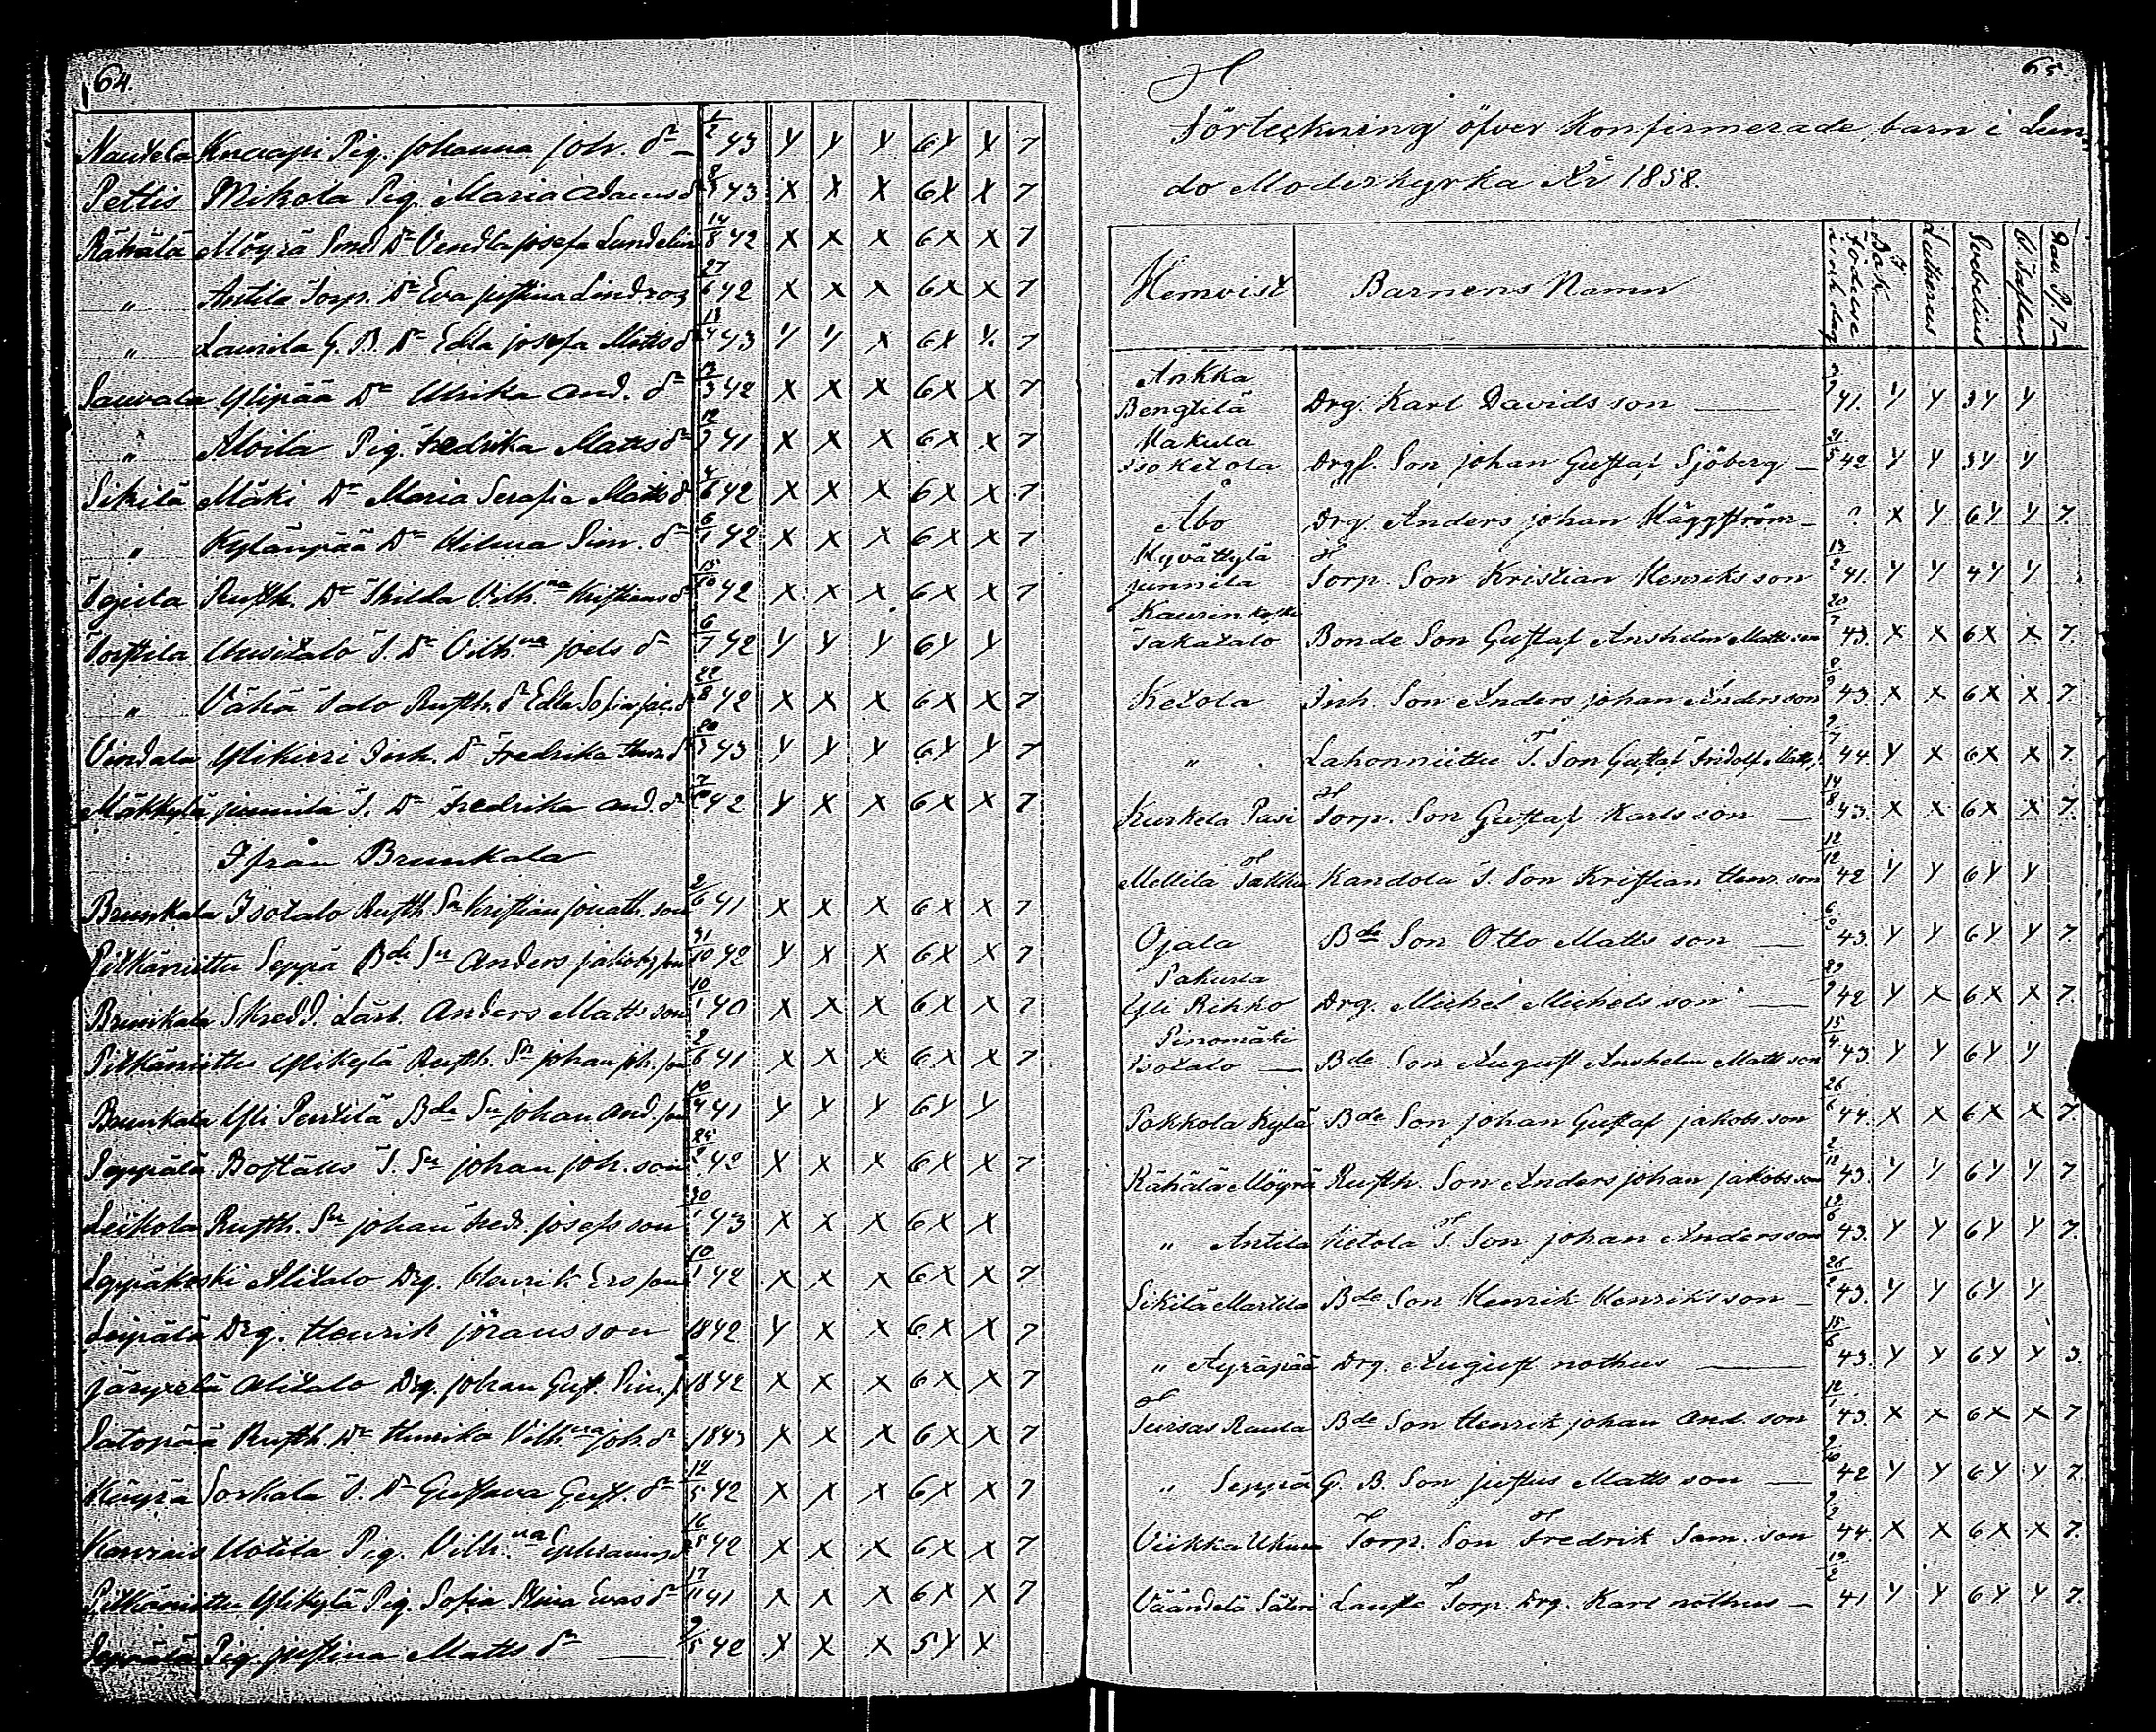 64.
Nautela Knaapi Pig. Johanna Joh. dr 1/2 43 Y Y Y 6Y Y 7
Pettis Mikola Pig. Maria Adams d 43 X X X 6X X 7
Rähälä Möyrä Smed Dr Vendla Josefa Lundelin 14/8 42 X X X 6X X 7
„ Antila Torp. Dr Eva Justina Lindroos 27/6 42 X X X 6X X 7
„ Launila G. B. Dr Edla Josefa Matts d 43 Y Y X 6Y Y 7
Sauvala Ylipää Dr Ulrika And. dr 13/3 42 X X X 6X X 7
„ Alvila Pig. Fredrika Matts dr 41 X X X 6X X 7
Sikilä Mäki Dr Maria Serafia Matts d 4/6 42 X X X 6X X 7
„ Kylänpää Dr Wilma Sim. dr 42 X X X 6X X 7
Rusth. Dr Vilh.na Kristians d 15/10 42 X X X 6X X 7
Uusitalo T. Dr Vilh.na Joels dr 6/7 42 Y Y Y 6Y Y
„ Vähä talo Rusth. d Edla Sofia 22/8 42 X X X 6X X 7
Vindala Ylikirri Inh. Dr Fredrika Henr. d 43 Y Y Y 6Y Y 7
Mäkkylä Junnila T. Dr Fredrika And. dr 42 Y X X 6X X 7
Ifrån Brunkala
Brunkala Isotalo Rusth. Sn Kristian Jonath. son 2/6 41 X X X 6X X 7
Pitkäniittu Seppä Bde Sn Anders Jakobs son 31/10 42 Y X X 6X X 7
Brunkala Skredd. Lärl. Anders Matts son 10/1 40 X X X 6X X 7
Pitkäniittu Ylikylä Rusth. Sn Johan Joh. son 2/6 41 X X X 6X X 7
Brunkala Yli Penttilä Bde Sn Johan And. son 10/4 41 Y Y Y 6Y Y
Seppälä T. Sn Johan Joh. son 42 X X X 6X X 7
Leikola Rusth. Sn Johan Fred. Josefs son 30/1 43 X X X 6X X
Leppäkoski Alitalo Drg. Henrik Ers son 10/1 42 X X X 6X X 7
Drg. Henrik Jörans son 1842 Y X X 6X X 7
Alitalo Drg. Johan Gust. Sim. 1842 X X X 6X X 7
Satopää Rusth. Dr Henrika Vilh.na Joh. dr 1843 X X X 6X X 7
Sorkala T. Dr Gustava Gust. dr 12/5 42 X X X 6X X 7
Pig. Vilh.na 42 X X X 6X X 7
Pitkäniittu Ylikylä Pig. Sofia Stina Evas dr 17/11 41 X X X 6X X 7
Pig. Justina Matts dr 2/5 42 X X X 5Y X
65.
Förteckning öfver Konfirmerade barn i Lun-
do Moderkyrka År 1858.
Hemvist Barnens Namn Födelse år och dag I Bok Lutherus Svebelius H Taflan Dav. Ps. 7
Ankka
Bengtilä Drg. Karl Davids son 41. Y Y 3Y Y
Makula
Isoketola Drgs. Son Johan Gustaf Sjöberg 21/5 42 Y Y 3Y Y
Åbo Drg. Anders Johan Häggström ? X Y 6Y Y 7.
Hyvättylä
Junnila Torp. Son Kristian Henriks son 13/2 41. Y Y 4Y Y
Kaurinkoski
Takatalo Bonde Son Gustaf Anshelm Matts son 20/7 43. X X 6X X 7.
Ketola Inh. Son Anders Johan Anders son 8/9 43. X X 6X X 7.
„ Lahonniittu T. Son Gustaf Fridolf Matts s. 44. Y X 6X X 7.
Kurkela Pasi Torp. Son Gustaf Karls son 14/8 43. X X 6X X 7.
Mellilä Takku Kandola T. Son Kristian Henr. son 12/12 42 Y Y 6Y Y
Ojala Bde Son Otto Matts son 43. Y Y 6Y Y 7.
Pakurla
Yli Rihko Drg. Michel Michels son 29/9 42 Y X 6X X 7.
Pinomäki
Isotalo Bde Son August Anshelm Matts son 15/4 43. Y Y 6Y Y
Pokkola Kylä Bde Son Johan Gustaf Jakobs son 26/6 44. X X 6X X 7.
Rähälä Möyrä Rusth. Son Anders Johan Jakobs son 2/12 43. Y Y 6Y Y 7
„ Antila Ketola T. Son Johan Anders son 12/6 43. Y Y 6Y Y 7.
Sikilä Marttila Bde Son Henrik Henriks son 26/2 43. Y Y 6Y Y
„ Äyräpää Drg. August nothus 15/6 43. Y Y 6Y Y 3.
Tursas Raula Bde Son Henrik Johan And. son 12/1 43. X X 6X X 7
„ Seppä G. B. Son Justus Matts son 2/10 42 Y Y 6Y Y 7.
Viikka Ukura Torp. Son Fredrik Sam. son 2/2 44. X X 6X X 7.
Väändelä Säteri Torp. Drg. Karl nothus 19/2 41 Y Y 6Y Y 7.